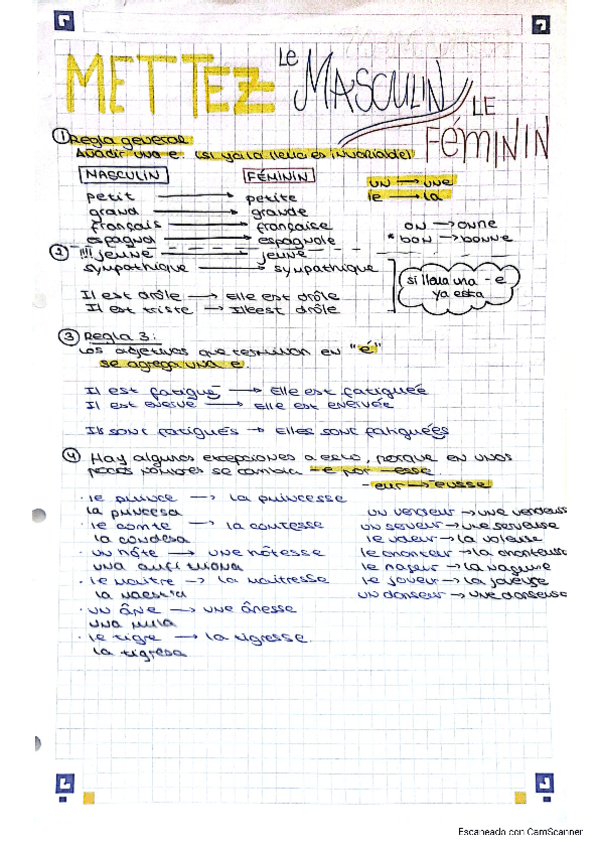 METTEZ Le MASCULIN LE FÉMININ
① Regla general
Añadir una e. (si ya la lleva es invariable)
MASCULIN FÉMININ
un → une
le → la
petit → petite
grand → grande
français → française
espagnol → espagnole
on → onne
* bon → bonne
② !!! jeune → jeune
sympathique → sympathique
si lleva una -e
ya esta
Il est drôle → Elle est drôle
Il est triste → Il est drôle
③ Regla 3:
Los adjetivos que terminan en "é"
se agrega una e.
Il est fatigué → Elle est fatiguée
Il est énervé → Elle est énervée
Ils sont fatigués → Elles sont fatiguées
④ Hay algunas excepciones a esto, porque en unos
pocos nombres se cambia -e por -esse.
-eur → eusse
· le prince → la princesse
la princesa
· le comte → la comtesse
la condesa
· un hôte → une hôtesse
una anfitriona
· le maître → la maîtresse
la maestra
· un âne → une ânesse
una mula
· le tigre → la tigresse.
la tigresa
un vendeur → une vendeuse
un serveur → une serveuse
le voleur → la voleuse
le chanteur → la chanteuse
le nageur → la nageuse
le joueur → la joueuse
un danseur → une danseuse
Escaneado con CamScanner